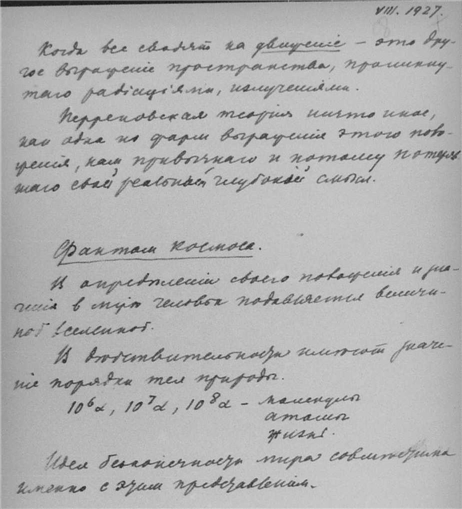 VIII. 1927.
Когда все сводят на движенiе – это дру-
гое выраженiе пространства, проникну-
таго радiацiями, излученiями.
Перреновская теорiя ничто иное,
как одна из форм выраженiя этого поло-
женiя, нам привычнаго и потому потеряв
шаго свой реальный глубокiй смысл.
Фантом космоса.
В опредѣленiи своего положенiя и зна-
ченiя в мiрѣ человѣк подавляется величи-
ной вселенной.
В дѣйствительности имѣют значе-
нiе порядки тѣл природы.
10⁶α, 10⁷α, 10⁸α – молекулы
атомы
жизнь.
Идея безконечности мира совместима
именно с этим представленiем.